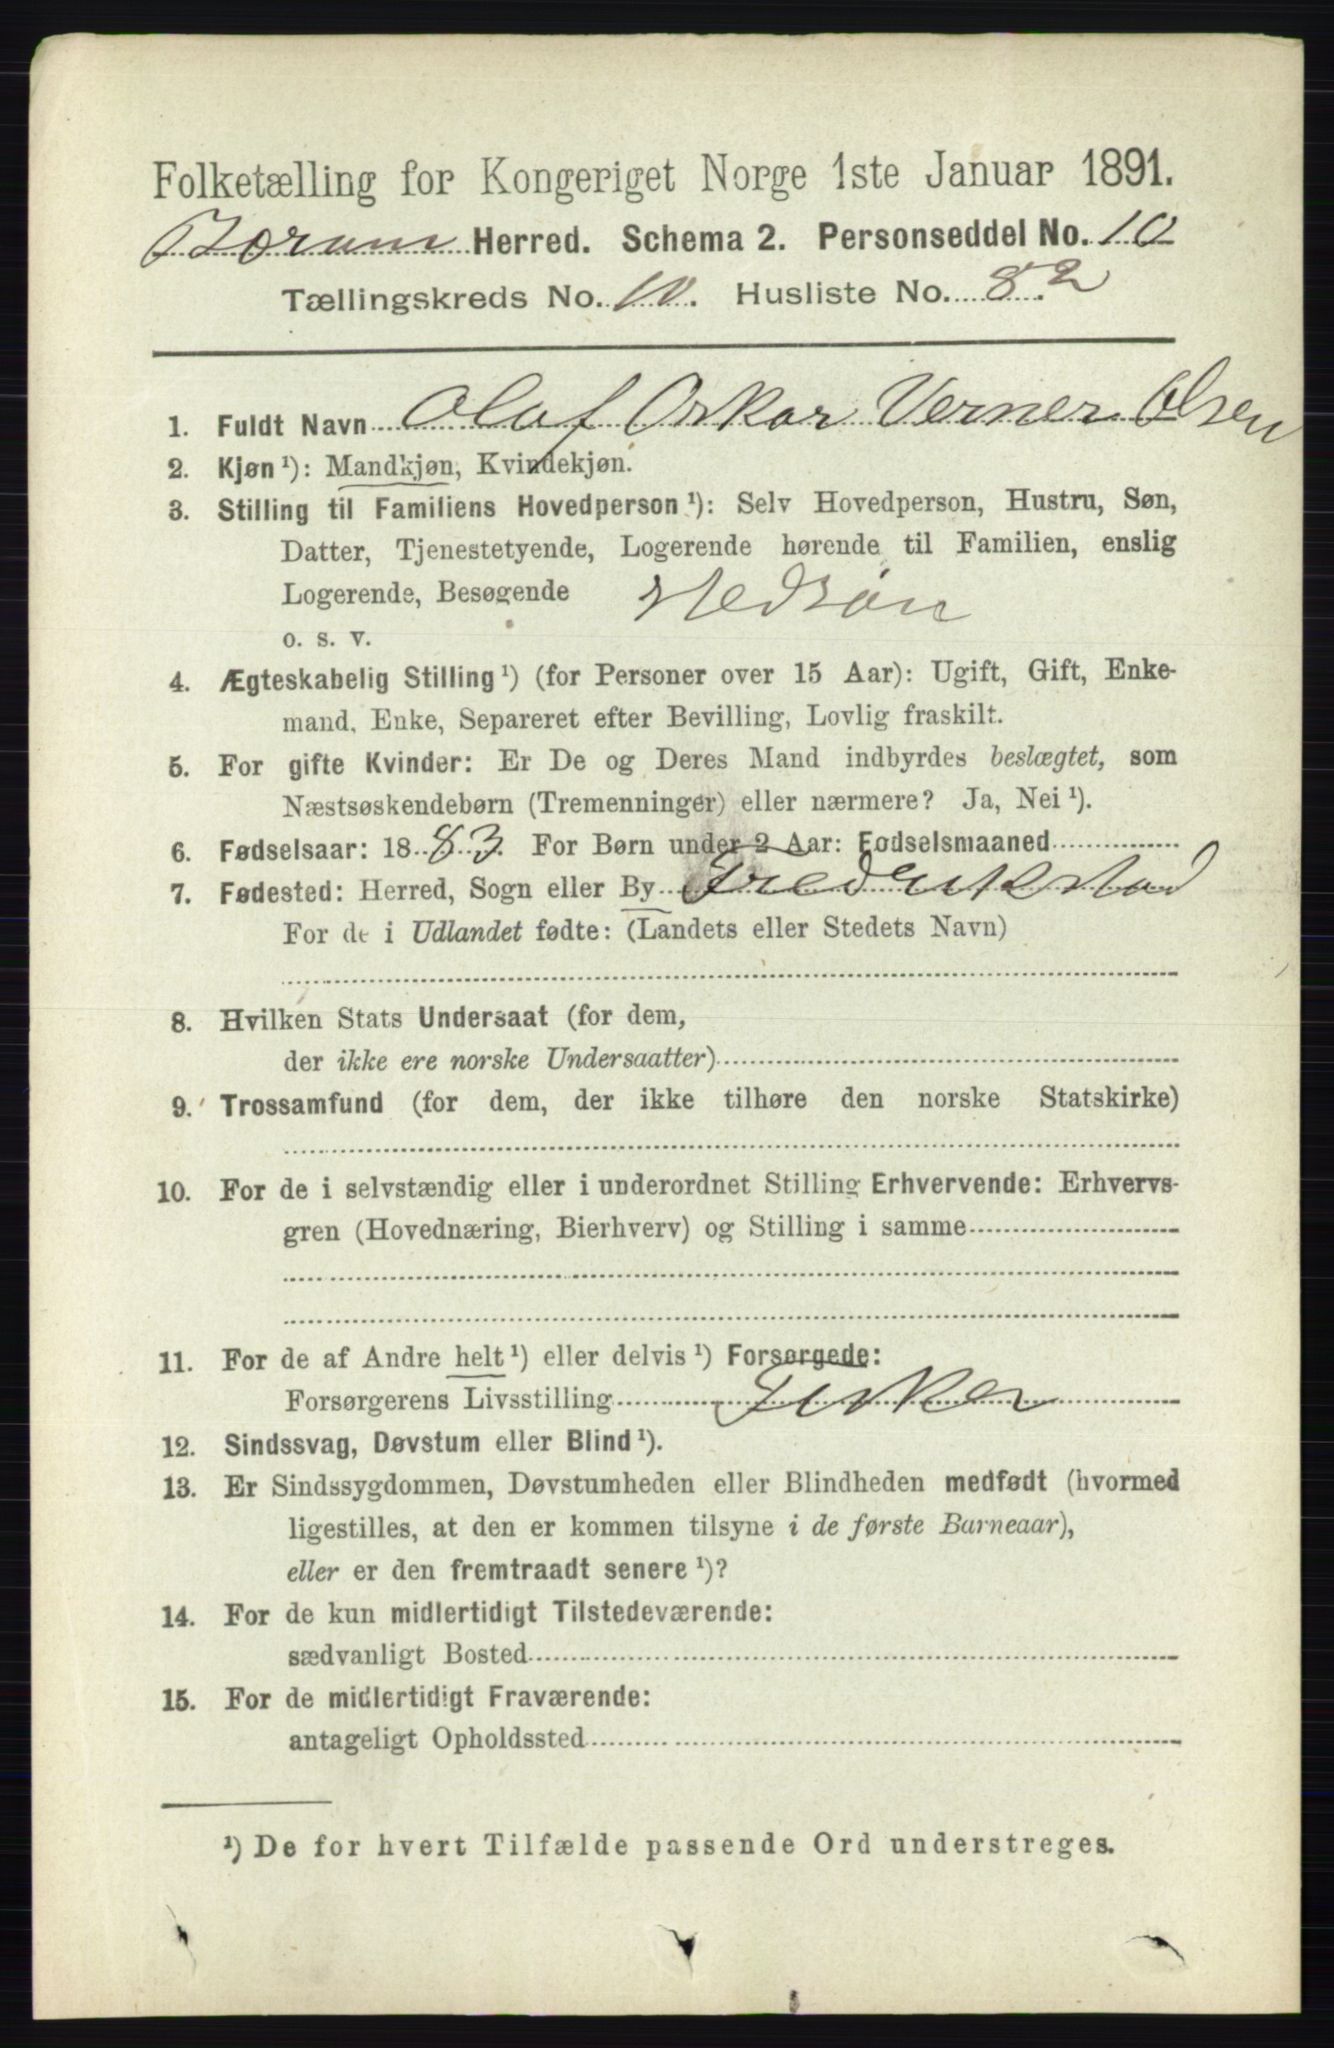 Folketælling for Kongeriget Norge 1ste Januar 1891.
Herred. Schema 2. Personseddel No. 10
Tællingskreds No. 10. Husliste No. 82
1. Fuldt Navn Olaf Oskar Verner Olsen
2. Kjøn ¹): Mandkjøn, Kvindekjøn.
3. Stilling til Familiens Hovedperson ¹): Selv Hovedperson, Hustru, Søn,
Datter, Tjenestetyende, Logerende hørende til Familien, enslig
Logerende, Besøgende Stedsøn
o. s. v.
4. Ægteskabelig Stilling ¹) (for Personer over 15 Aar): Ugift, Gift, Enke-
mand, Enke, Separeret efter Bevilling, Lovlig fraskilt.
5. For gifte Kvinder: Er De og Deres Mand indbyrdes beslægtet, som
Næstsøskendebørn (Tremenninger) eller nærmere? Ja, Nei ¹).
6. Fødselsaar: 1883. For Børn under 2 Aar: Fødselsmaaned
7. Fødested: Herred, Sogn eller By Frederikstad
For de i Udlandet fødte: (Landets eller Stedets Navn)
8. Hvilken Stats Undersaat (for dem,
der ikke ere norske Undersaatter)
9. Trossamfund (for dem, der ikke tilhøre den norske Statskirke)
10. For de i selvstændig eller i underordnet Stilling Erhvervende: Erhvervs-
gren (Hovednæring, Bierhverv) og Stilling i samme
11. For de af Andre helt ¹) eller delvis ¹) Forsørgede:
Forsørgerens Livsstilling Fisker
12. Sindssvag, Døvstum eller Blind ¹).
13. Er Sindssygdommen, Døvstumheden eller Blindheden medfødt (hvormed
ligestilles, at den er kommen tilsyne i de første Barneaar),
eller er den fremtraadt senere ¹)?
14. For de kun midlertidigt Tilstedeværende:
sædvanligt Bosted
15. For de midlertidigt Fraværende:
antageligt Opholdssted
¹) De for hvert Tilfælde passende Ord understreges.